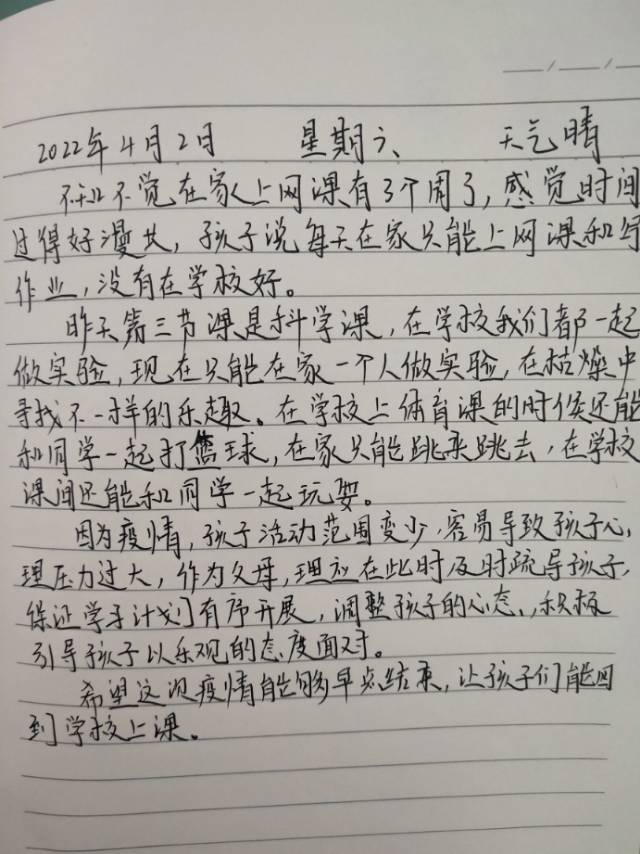 2022年4月2日 星期六、 天气晴
不知不觉在家上网课有3个周了,感觉时间
过得好漫长,孩子说每天在家只能上网课和写
作业,没有在学校好。
昨天第三节课是科学课,在学校我们都一起
做实验,现在只能在家一个人做实验,在枯燥中
寻找不一样的乐趣。在学校上体育课的时候还能
和同学一起打篮球,在家只能跳来跳去,在学校
课间还能和同学一起玩耍。
因为疫情,孩子活动范围变少,容易导致孩子心
理压力过大,作为父母,理应在此时及时疏导孩子,
保证学习计划有序开展,调整孩子的心态,积极
引导孩子以乐观的态度面对。
希望这次疫情能够早点结束,让孩子们能回
到学校上课。